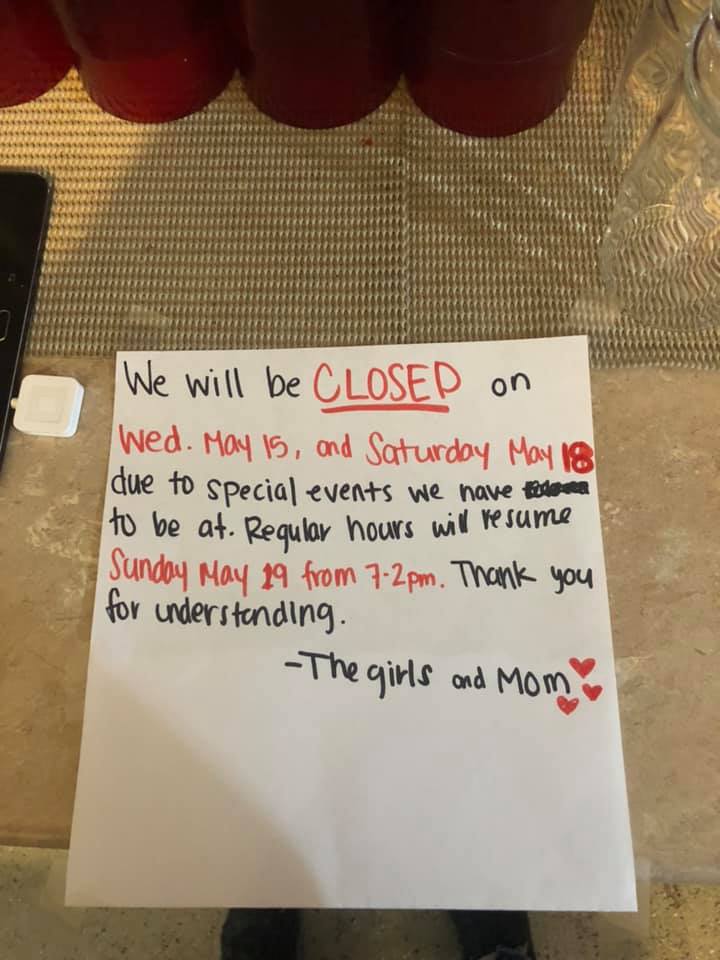 We will be CLOSED on
Wed. May 15, and Saturday May 18
due to special events we have
to be at. Regular hours will resume
Sunday May 19 from 7-2pm. Thank you
for understanding.
-The girls and Mom